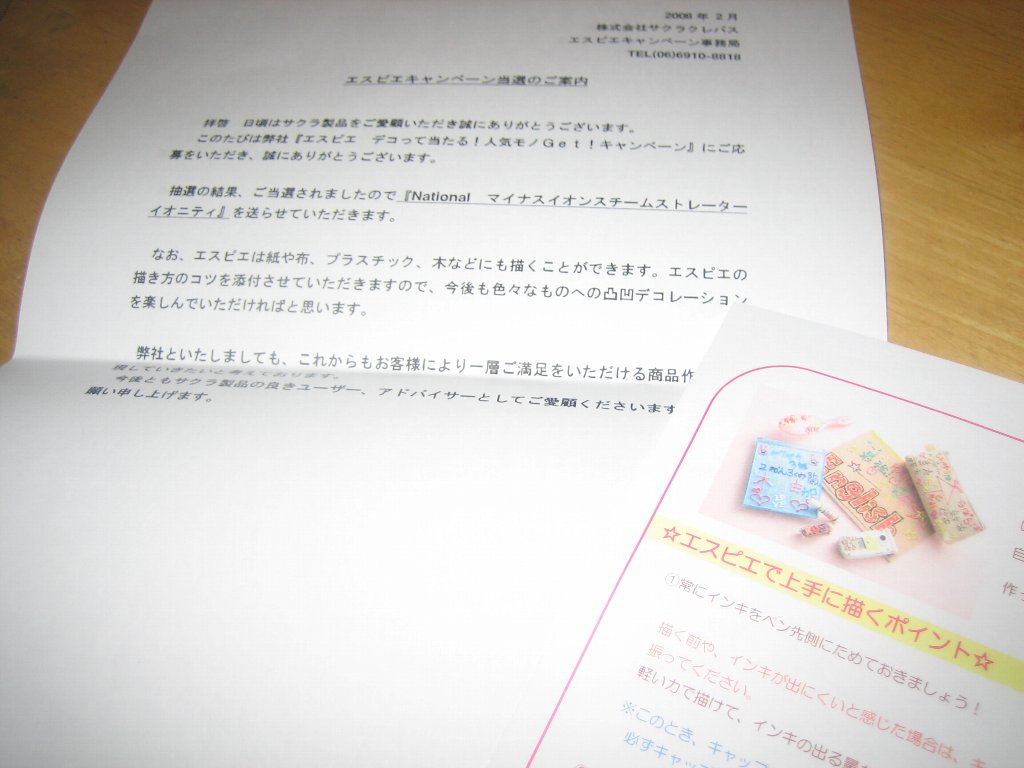 2008 年 2 月
株式会社サクラクレパス
エスピエキャンペーン事務局
TEL(06)6910-8818
エスピエキャンペーン当選のご案内
拝啓 日頃はサクラ製品をご愛顧いただき誠にありがとうございます。
このたびは弊社『エスピエ デコって当たる!人気モノGet!キャンペーン』にご応
募をいただき、誠にありがとうございます。
抽選の結果、ご当選されましたので『National マイナスイオンスチームストレーター
イオニティ』を送らせていただきます。
なお、エスピエは紙や布、プラスチック、木などにも描くことができます。エスピエの
描き方のコツを添付させていただきますので、今後も色々なものへの凸凹デコレーション
を楽しんでいただければと思います。
弊社といたしましても、これからもお客様により一層ご満足をいただける商品作
していきたいと考えております。
今後ともサクラ製品の良きユーザー、アドバイザーとしてご愛顧くださいます
願い申し上げます。
English
☆エスピエで上手に描くポイント☆
①常にインキをペン先側にためておきましょう!
描く前や、インキが出にくいと感じた場合は、キ
振ってください。
軽い力で描けて、インキの出る量
※このとき、キャップ
必ずキャッ
自
作